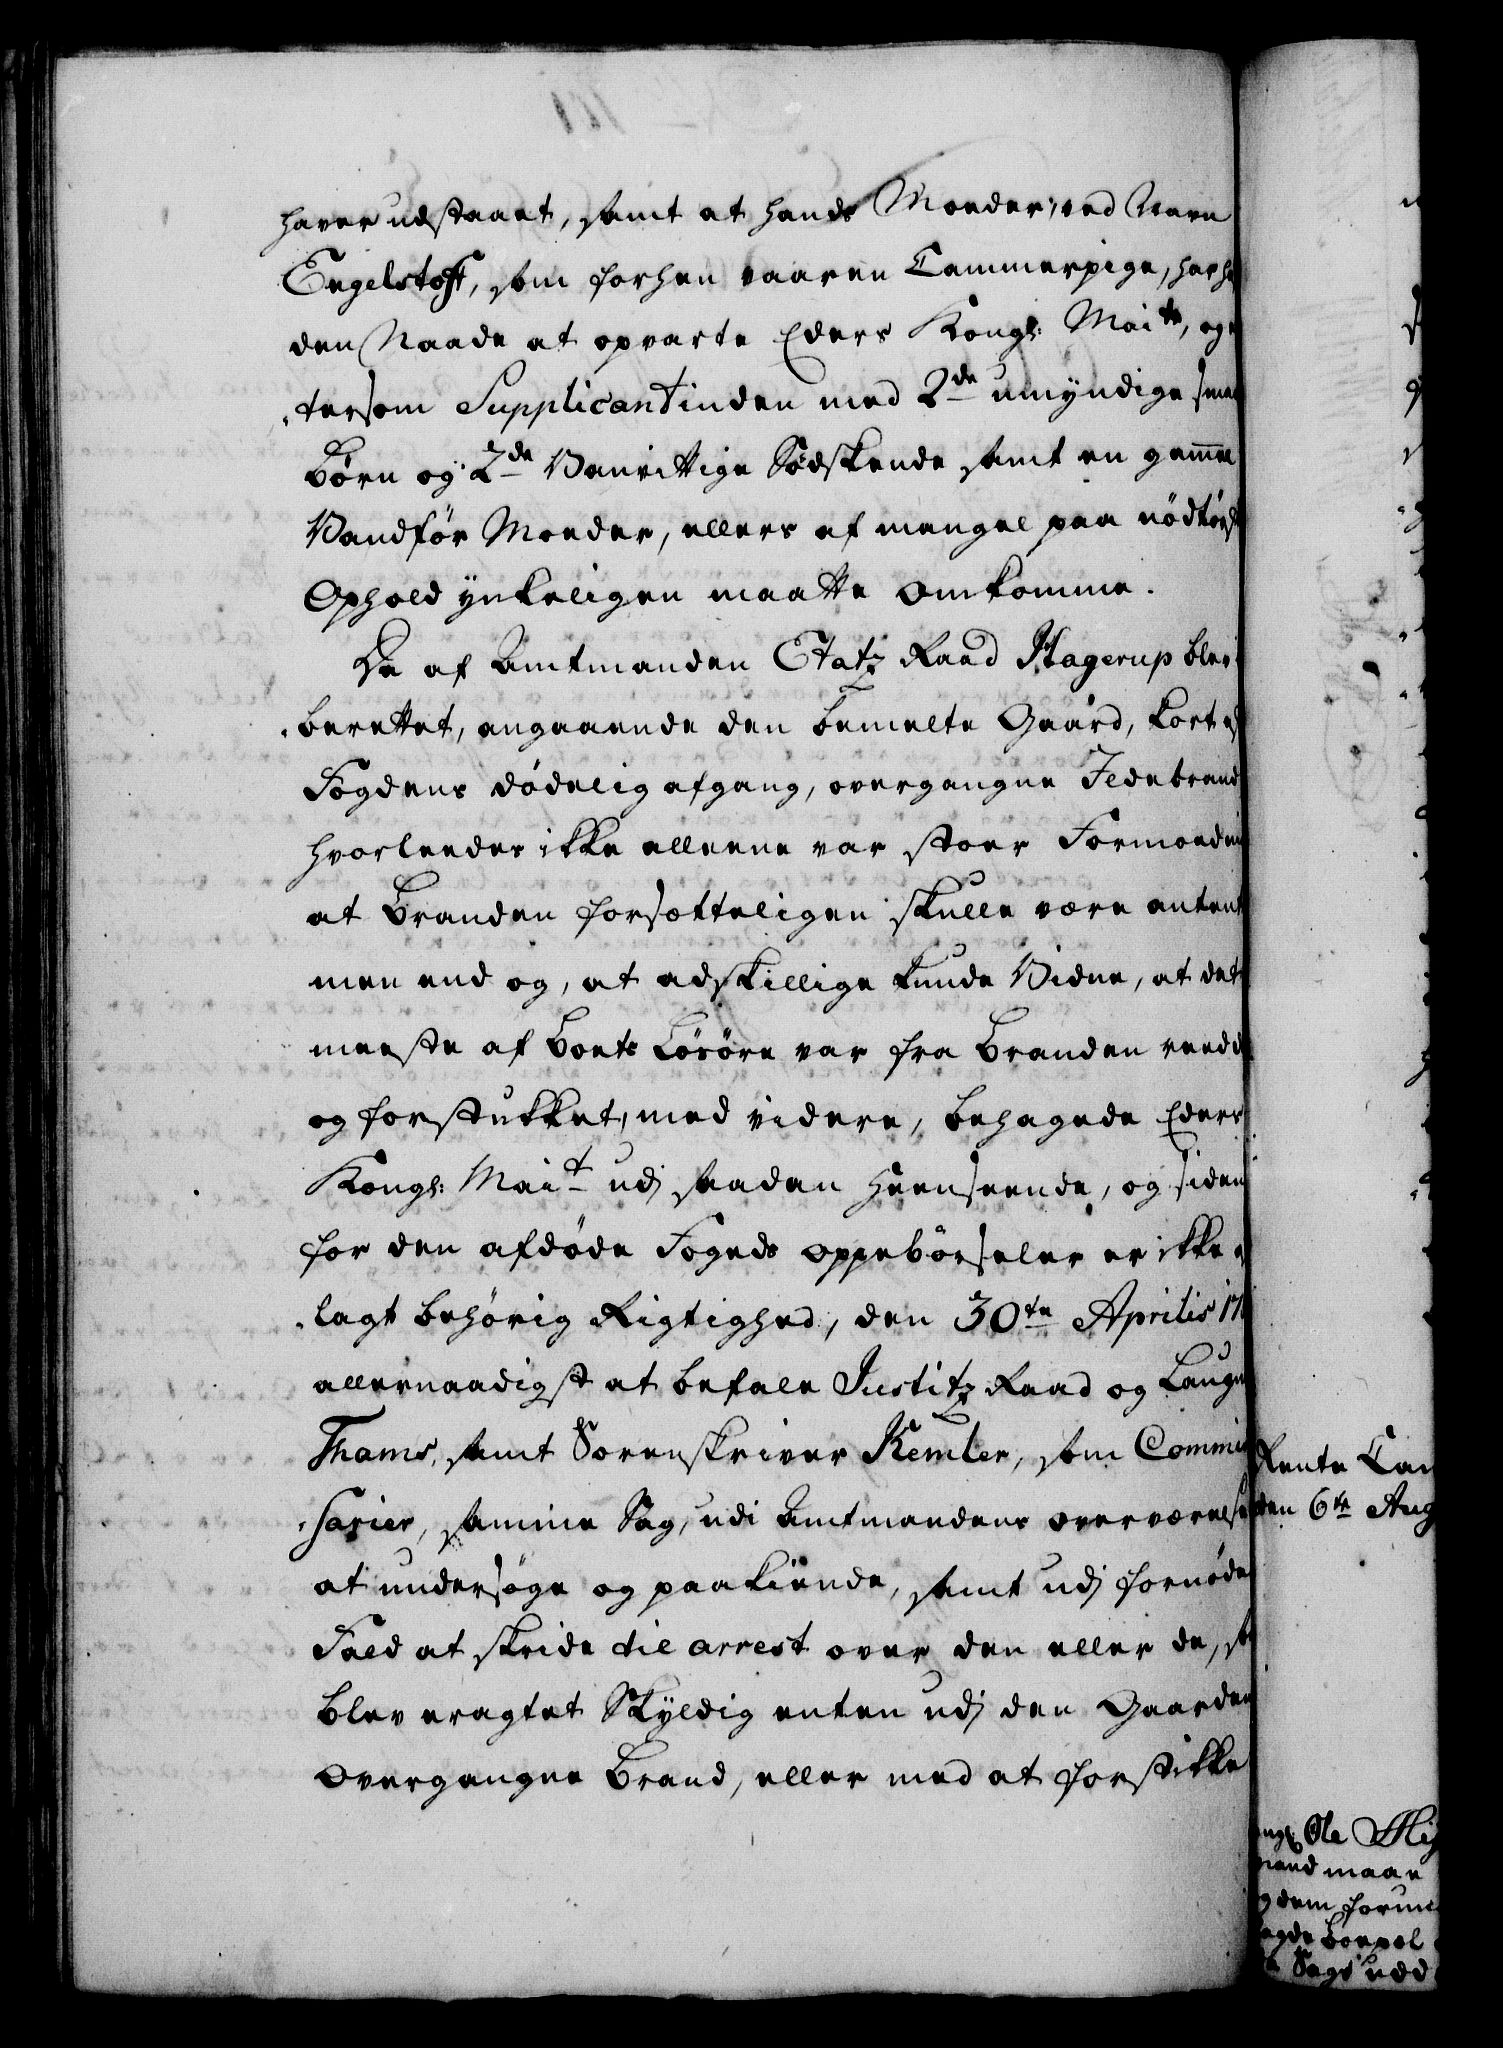 haver udstaaet, samt at hands Moeder, ved Navn
Engelstoft, som forhen vaaren Cammerpige, har
den Naade at opvarte Eders Kongl: Maitt, og
tersom Supplicantinden med 2de umyndige smaa
Börn og 2de Vanvittige Södskende samt en gammel
Vandför Moeder, ellers af mangel paa nödtörf
Ophold ynkeligen maatte omkomme.
Da af Amtmanden Etatz Raad Hagerup blev
berettet, angaaende den bemelte Gaard, kort
Fogdens dödelig afgang, overgangne Ildebrand
hvorleedes ikke alleene var stoer Formoedni
at Branden forsætteligen skulle være antent
men end og, at adskillige kunde Vidne, at det
meeste af Boets Lösöre var fra Branden reedd
og forstukket, med videre, behagede Eders
Kongl: Mait udj saadan Heenseende, og siden
for den afdöde Fogeds Oppebörseler er ikke
lagt behörig Rigtighed, den 30te Aprilis 17
allernaadigst at befale Justitz Raad og Laugm
Thams, samt Sorenskriver Kemler, som Commi
sarier, samme Sag, udi Amtmandens overværelse
at undersöge og paakiende, samt udj fornöden
Fald at skride til arrest over den eller de, so
blev eragtet Skyldig enten udj den Gaarden
Overgangne Brand, eller med at forstikke
Rente Cam
den 6te Aug
Ole
mand maae
dem forun